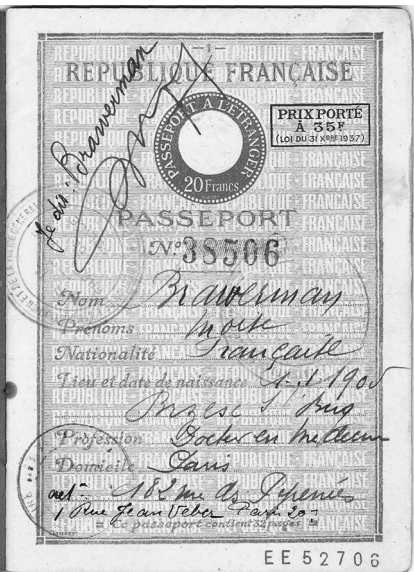 — 1 —
RÉPUBLIQUE FRANÇAISE
Je dis : Brawerman
PASSEPORT A L'ETRANGER
20 Francs
PRIX PORTÉ
À 35F
(LOI DU 31 XBRE 1937)
PASSEPORT
N° 38506
Nom Brawerman
Prénoms
Nationalité Française
Lieu et date de naissance 1905
Brzesc s/ Bug
Profession Docteur en Medecine
Domicile Paris
act^t 182 rue des Pyrenées
1 Rue Jean Veber Paris 20
= Ce passeport contient 32 pages =
EE 52706